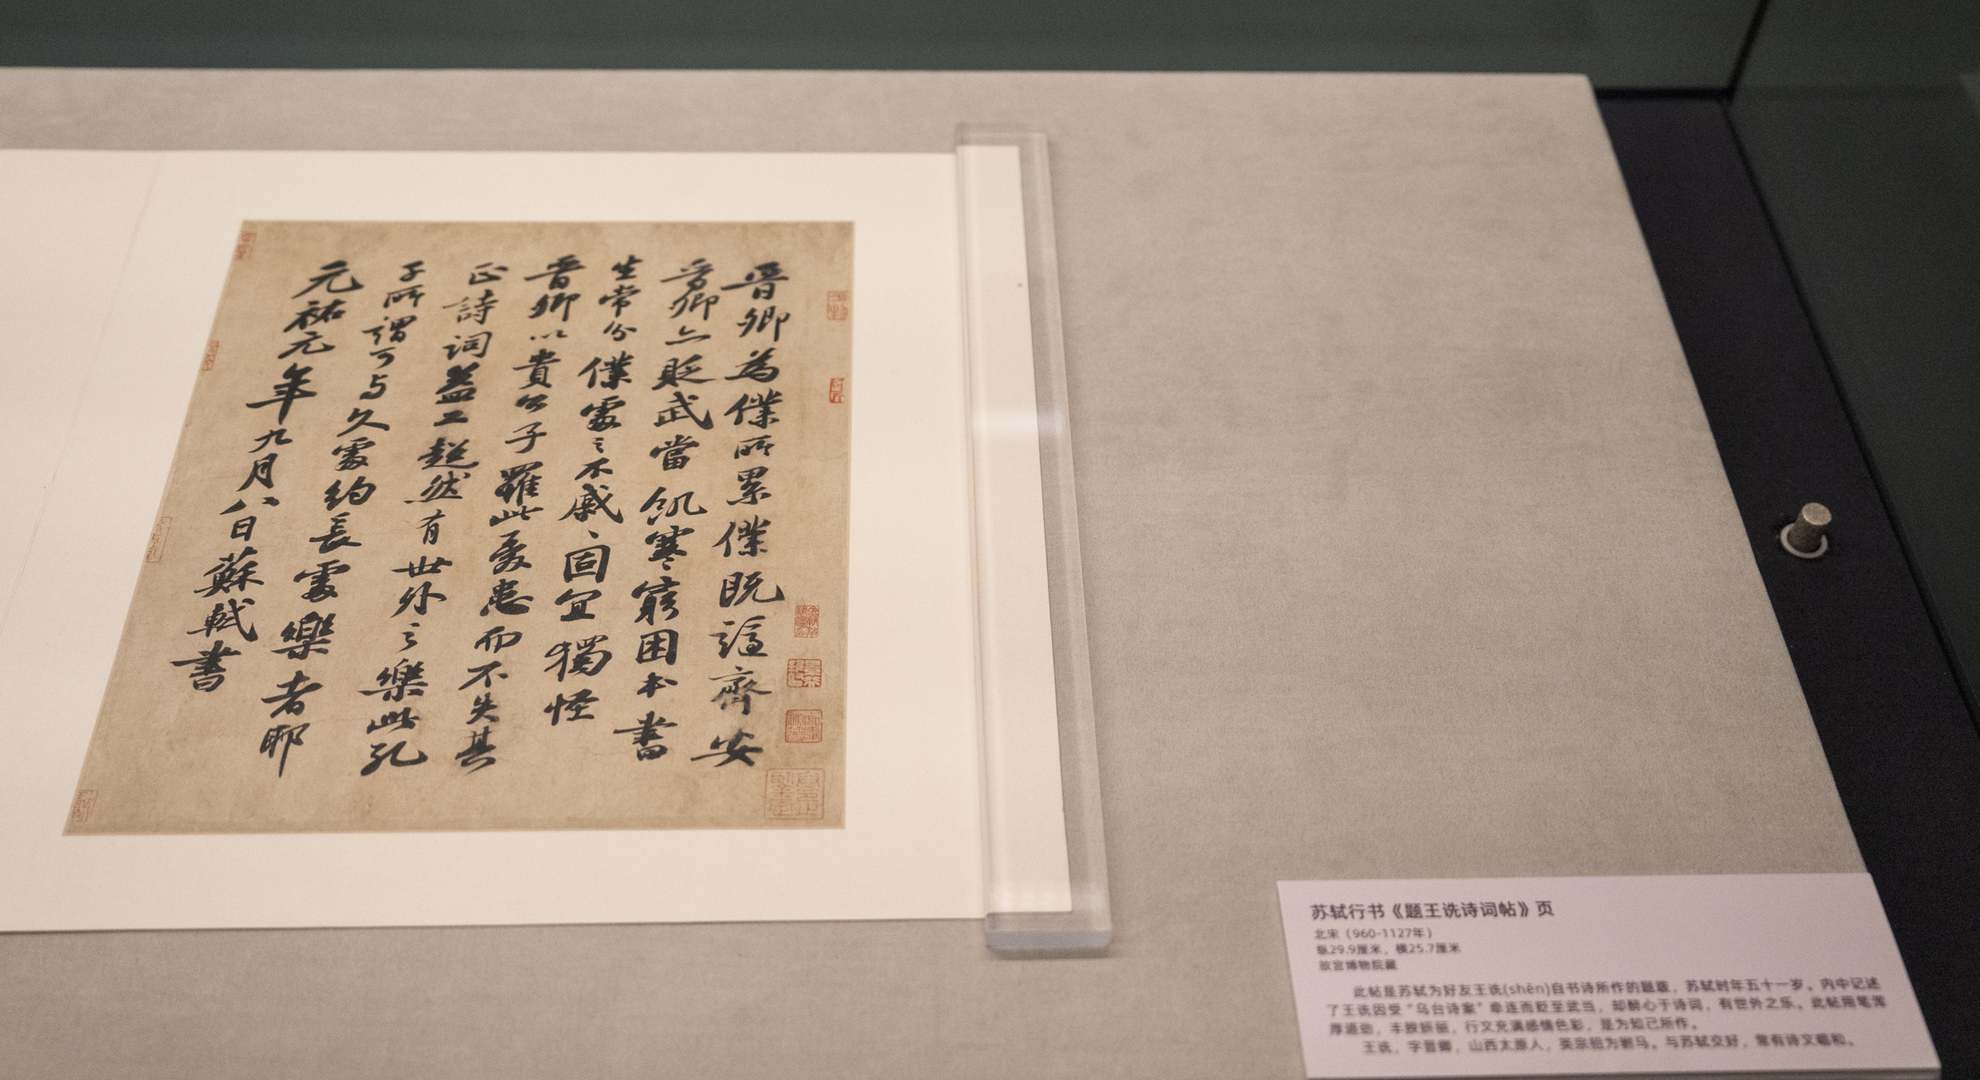 晋卿為僕所累僕既謫齊安
晋卿亦貶武當飢寒窮困本書
生常分僕處之不戚戚固宜獨怪
晋卿以貴公子罹此憂患而不失其
正詩詞益工超然有世外之樂此孔
子所謂可与久處約長處樂者耶
元祐元年九月八日蘇軾書
苏轼行书《题王诜诗词帖》页
北宋（960-1127年）
纵29.9厘米，横25.7厘米
故宫博物院藏
此帖是苏轼为好友王诜(shēn)自书诗所作的题跋，苏轼时年五十一岁。内中记述
了王诜因受“乌台诗案”牵连而贬至武当，却醉心于诗词，有世外之乐。此帖用笔浑
厚遒劲，丰腴妍丽，行文充满感情色彩，是为知己所作。
王诜，字晋卿，山西太原人，英宗招为驸马。与苏轼交好，常有诗文唱和。